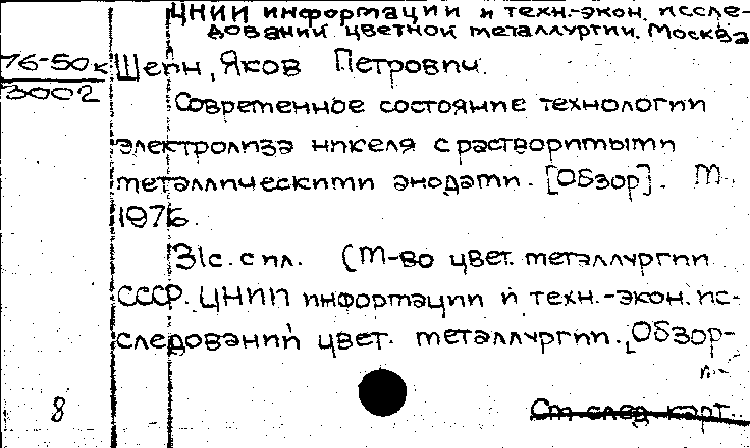 ЦНИИ информации и техн.-экон. иссле-
дований цветной металлургии. Москва
76-50к Шеин, Яков Петрович.
3002
Современное состояние технологии
электролиза никеля с растворимыми
металлическими анодами. [Обзор]. М.,
1976.
31с. с ил. (М-во цвет. металлургии
СССР. ЦНИИ информации и техн.-экон. ис-
следований цвет. металлургии. [Обзор-
н-
8 См след карт.